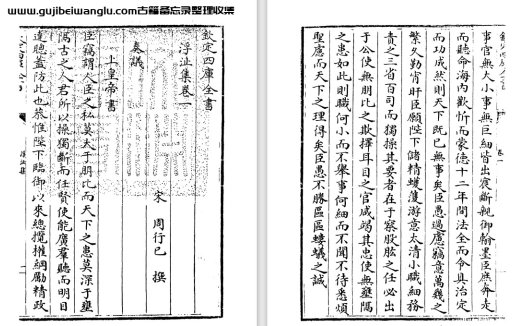 www.gujibeiwanglu.com古籍备忘录整理收集
欽定四庫全書
浮沚集卷一
宋 周行己 撰
奏議
上皇帝書
臣竊謂人臣之私莫大于朋比而天下之患莫深于壅
隔古之人君所以操獨斷而任賢使能廣羣聽而明目
達聰蓋防此也恭惟陛下臨御以來總攬權綱勵精政
事官無大小事無巨細皆出宸斷親御翰墨臣庶奔走
而聽命海内歡忻而蒙德十二年間法全而令具治定
而功成然則天下既已無事矣臣愚過慮竊意萬幾之
繁久勤宵旰臣願陛下儲精蠖濩游意太清小職細務
責之三省百司而獨操其要者在于察股肱之任必出
于公使無朋比之欺擇耳目之官咸竭其忠使無壅隔
之患如此則職何小而不舉事何細而不聞不待悉煩
聖慮而天下之理得矣臣愚不勝區區螻蟻之誠